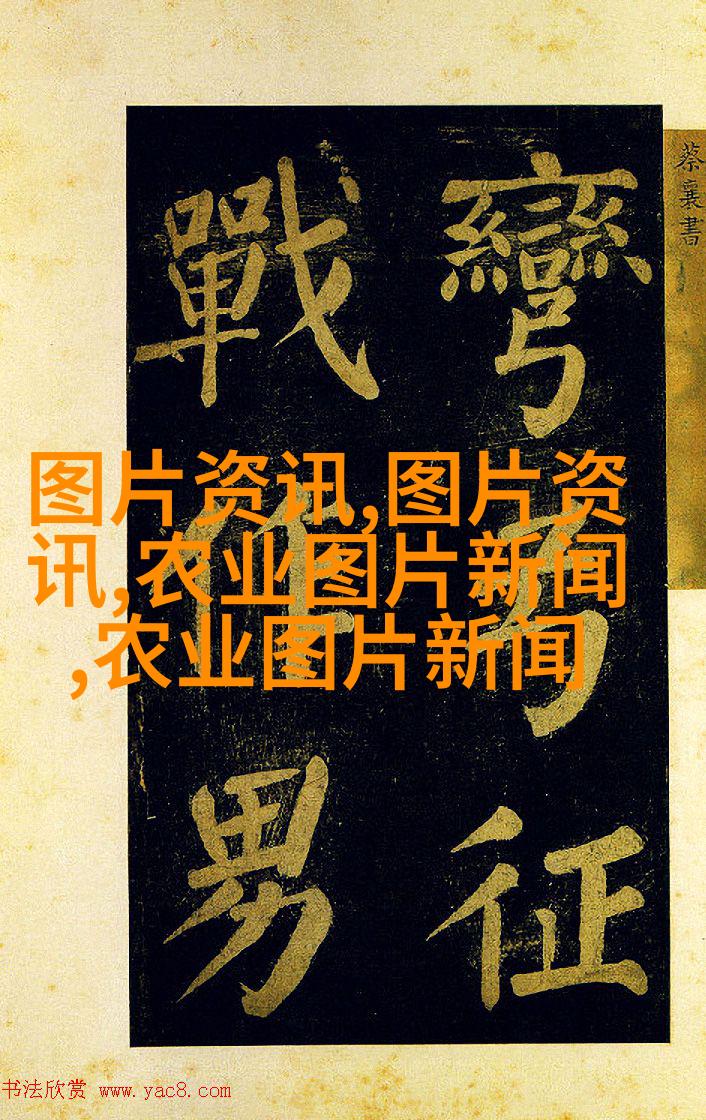 蔡襄書
彎弓征
戰作男
图片资讯,图片资
讯,农业图片新闻
,农业图片新闻
书法欣赏 www.yac8.com